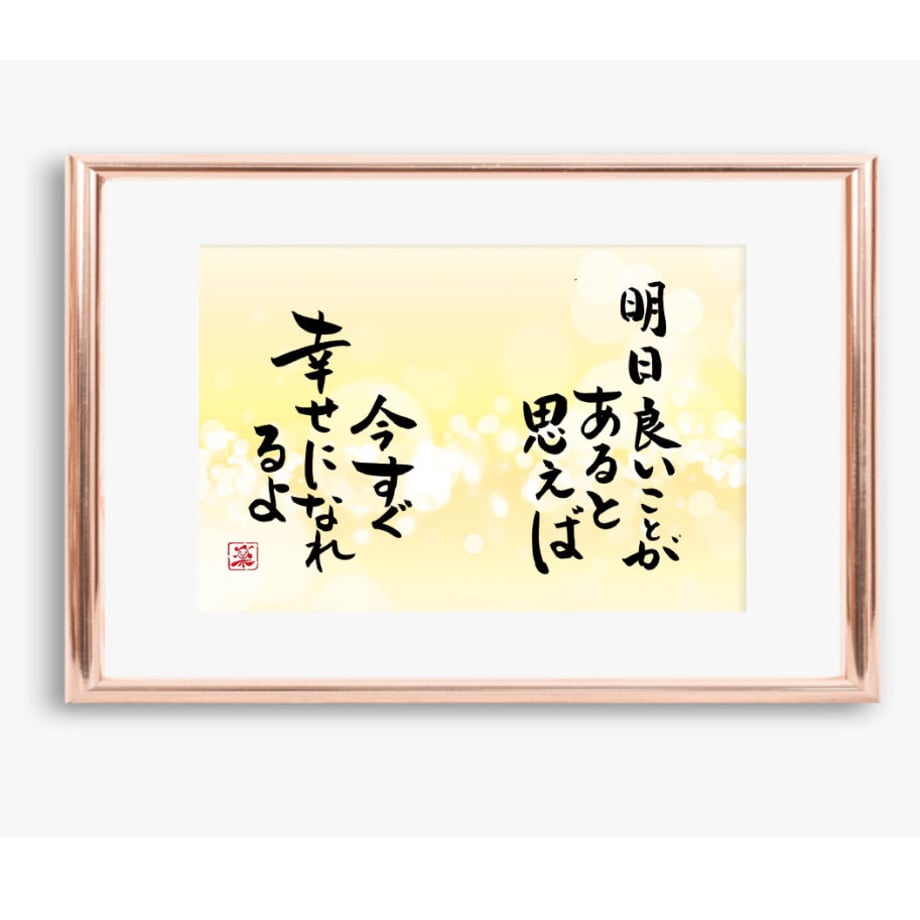 明日良いことが
あると
思えば
今すぐ
幸せになれ
るよ
楽